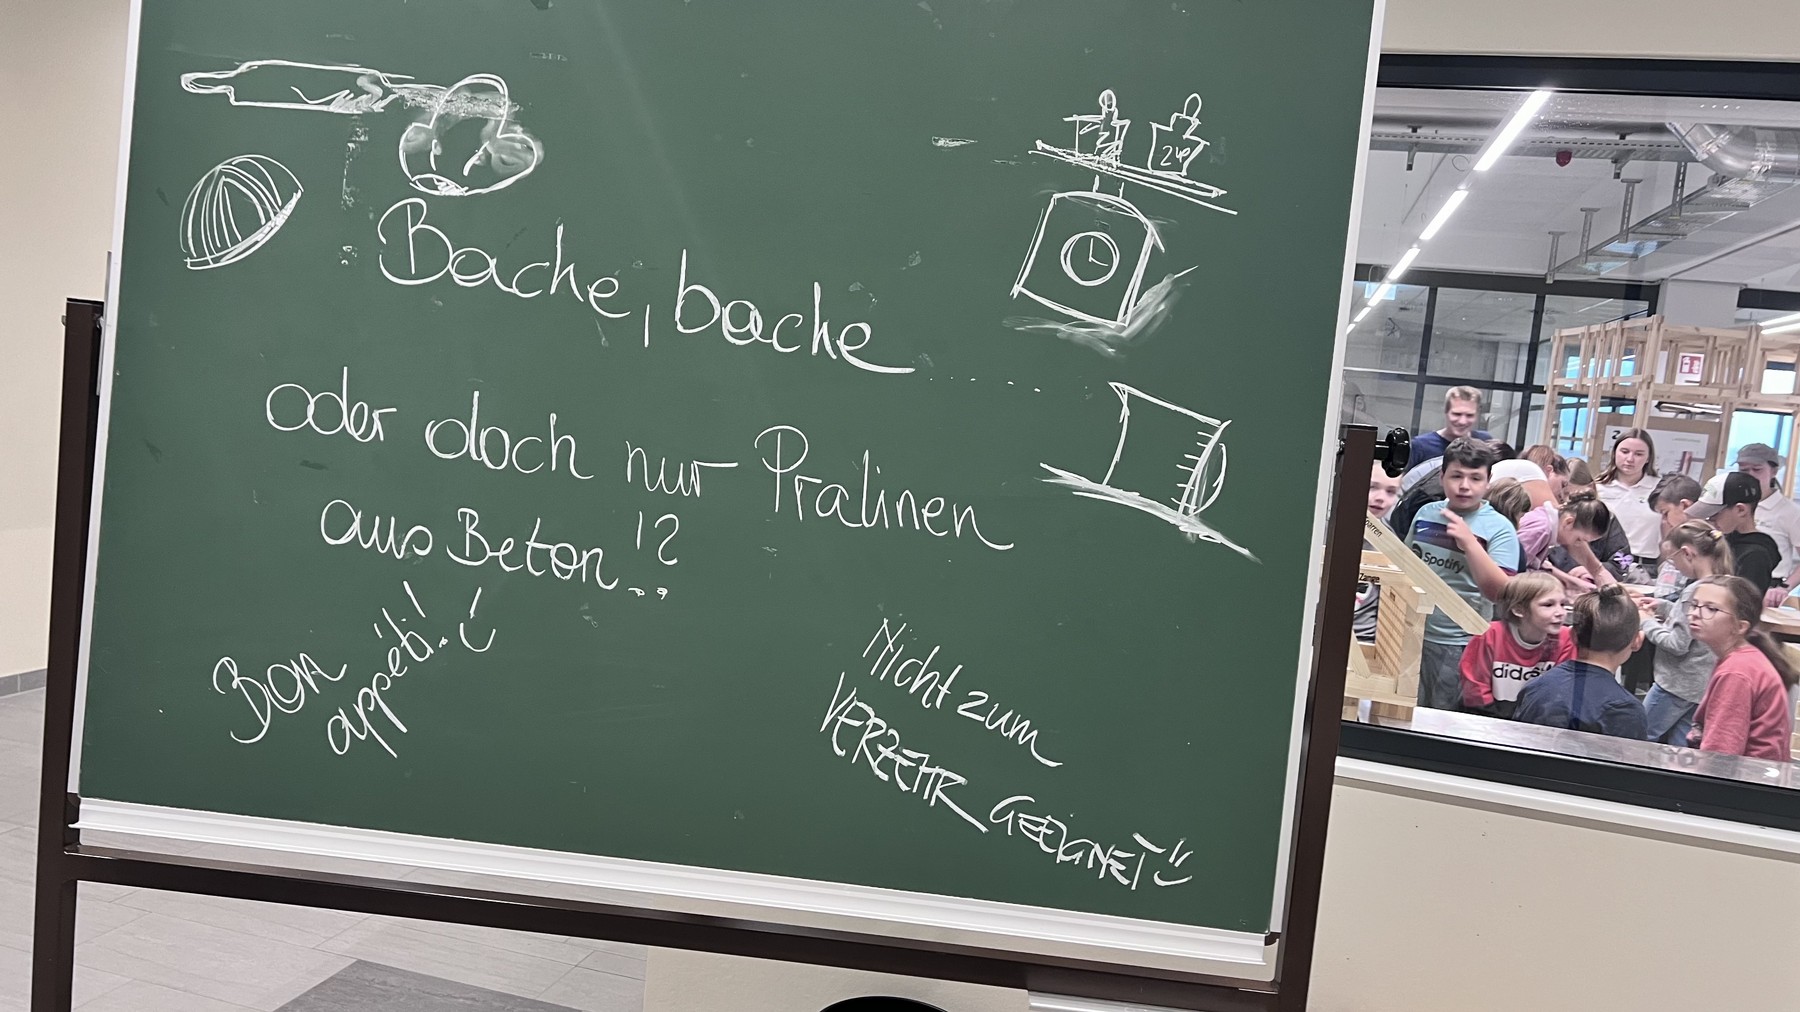 Backe, backe ........
oder doch nur Pralinen
aus Beton..!?
Bon
appéti!
Nicht zum
VERZEHR GEEIGNET
Spotify
adidas
Zange